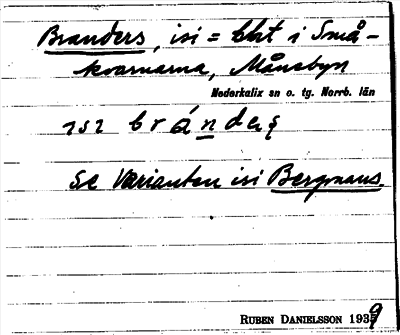 Branders, isi = bht i Små-
kvarnarna, Månsbyn
Nederkalix sn o. tg. Norrb. län
ısı brándeṣ
Se Varianten isi Bergmans.
RUBEN DANIELSSON 1939